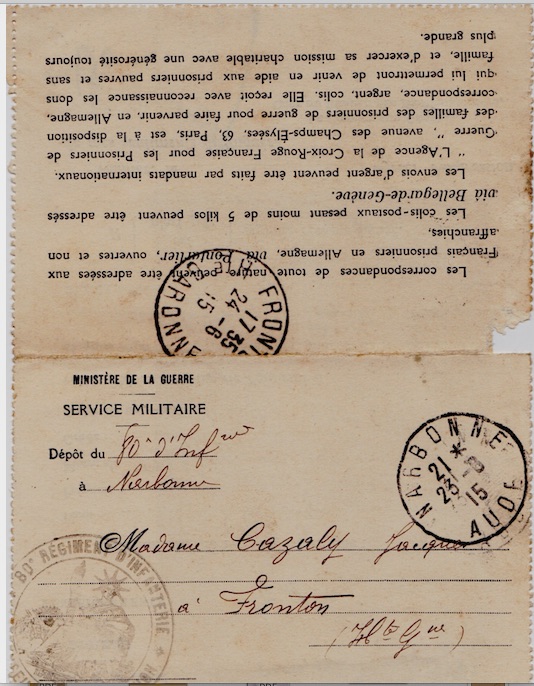 Les correspondances de toute nature peuvent être adressées aux
Français prisonniers en Allemagne, via Pontarlier, ouvertes et non
affranchies,
Les colis-postaux pesant moins de 5 kilos peuvent être adressés
viâ Bellegarde-Genève.
Les envois d'argent peuvent être faits par mandats internationaux.
" L'Agence de la Croix-Rouge Française pour les Prisonniers de
Guerre ", avenue des Champs-Elysées, 63, Paris, est à la disposition
des familles des prisonniers de guerre pour faire parvenir, en Allemagne,
correspondance, argent, colis. Elle reçoit avec reconnaissance les dons
qui lui permettront de venir en aide aux prisonniers pauvres et sans
famille, et d'exercer sa mission charitable avec une générosité toujours
plus grande.
FRONTON
17 35
24 - 6
15
GARONNE
MINISTÈRE DE LA GUERRE
SERVICE MILITAIRE
Dépôt du 80e d'Infrie
à Narbonne
NARBONNE
21 *
23
15
AUDE
80e RÉGIMENT D'INFANTERIE
Madame Cazaly Jacques
à Fronton
(Hte Gne)